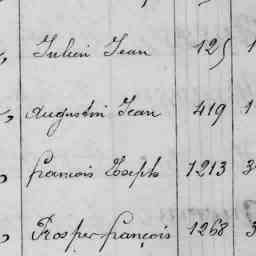 , Julien Jean 125 1
, Augustin Jean 419 1
, françois Joseph 1213 3
, Prosper françois 1268 3